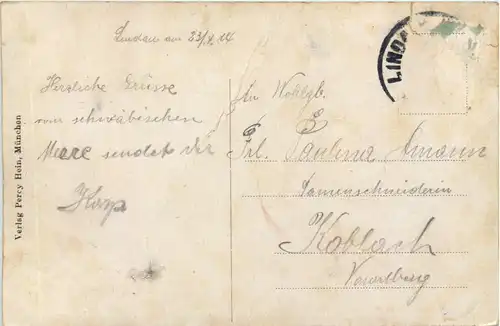 Lindau am 23/9. 14
Herzliche Grüsse
vom schwäbischen
Meere sendet dir
An Wohlgb.
Frl. Paulina Amann
Damenschneiderin
Koblach
Vorarlberg
LINDAU
Verlag Percy Hein, München